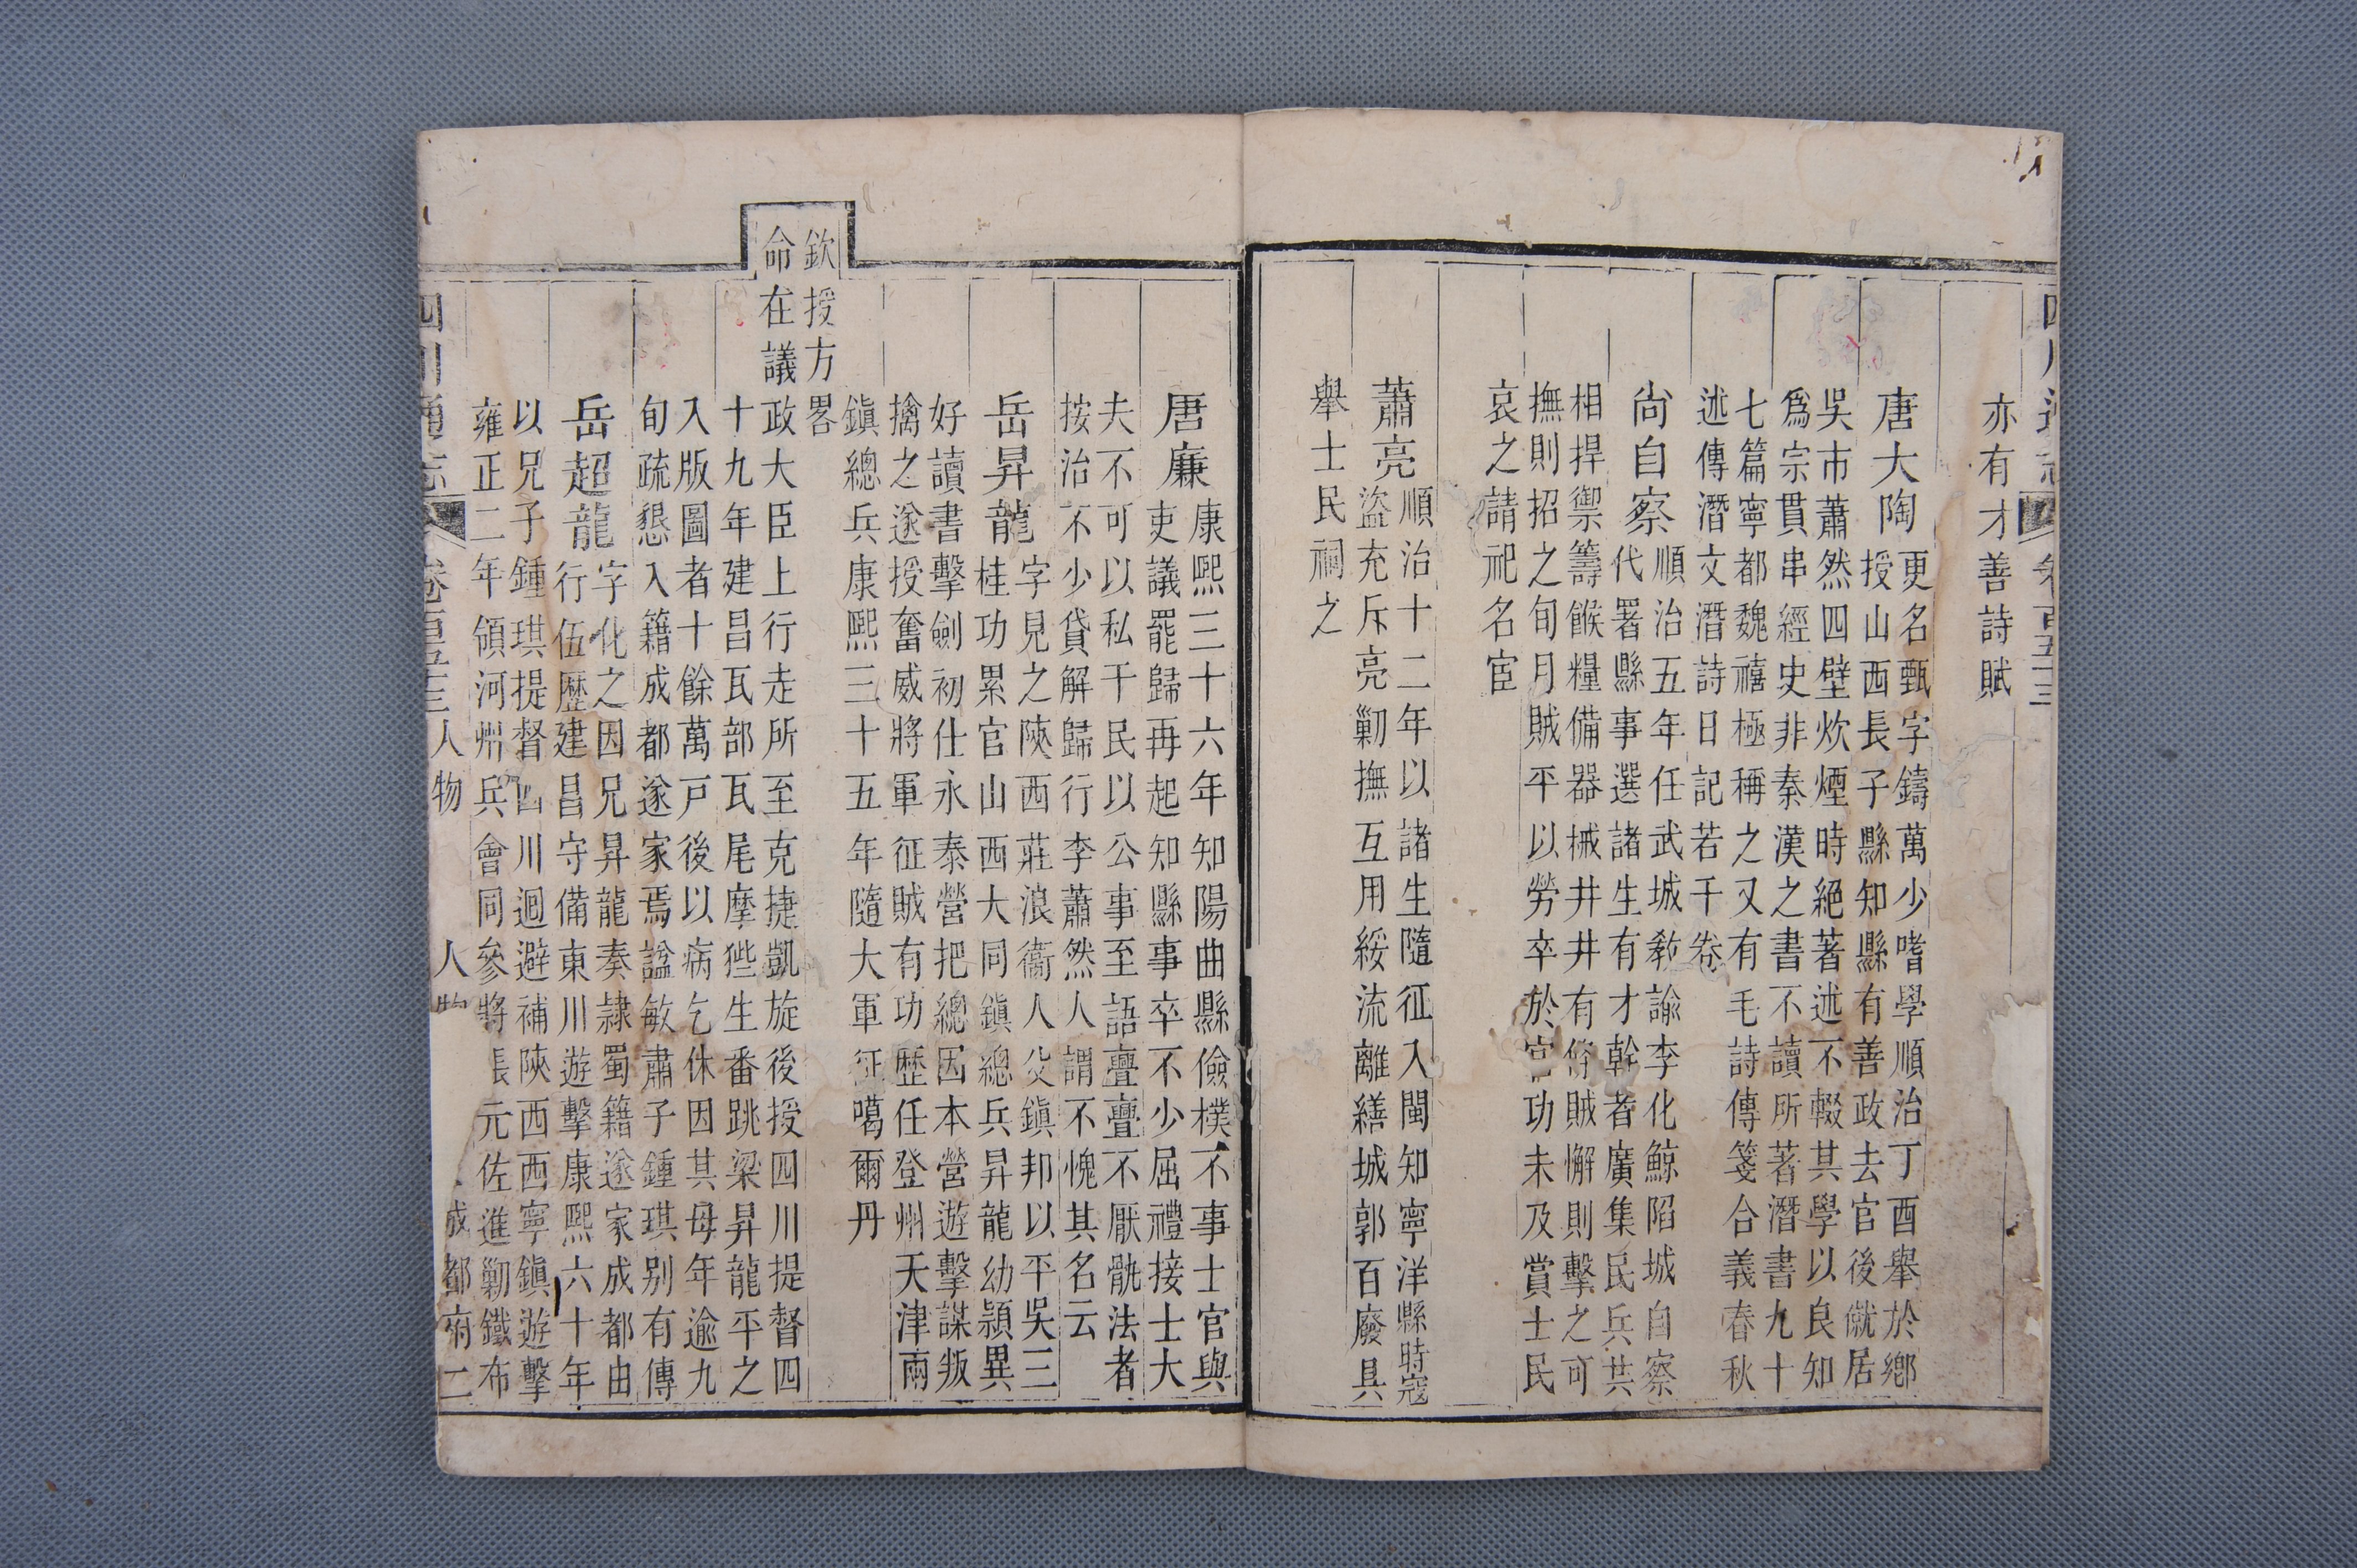 亦有才善詩賦
唐大陶
更名甄字鑄萬少嗜學順治丁酉舉於鄉
授山西長子縣知縣有善政去官後僦居
吳市蕭然四壁炊煙時絕著述不輟其學以良知
爲宗貫串經史非秦漢之書不讀所著潛書九十
七篇寧都魏禧極稱之又有毛詩傳箋合義春秋
述傳潛文潛詩日記若干卷
尙自察
順治五年任武城敎諭李化鯨陷城自察
代署縣事選諸生有才幹者廣集民兵共
相捍禦籌餱糧備器械井井有條賊懈則擊之可
撫則招之旬月賊平以勞卒於官功未及賞士民
哀之請祀名宦
蕭亮
順治十二年以諸生隨征入閩知寧洋縣時寇
盜充斥亮勦撫互用綏流離繕城郭百廢具
舉士民祠之
唐廉
康熙三十六年知陽曲縣儉樸不事士官與
吏議罷歸再起知縣事卒不少屈禮接士大
夫不可以私干民以公事至語亹亹不厭骫法者
按治不少貸解歸行李蕭然人謂不愧其名云
岳昇龍
字見之陝西莊浪衞人父鎭邦以平吳三
桂功累官山西大同鎭總兵昇龍幼穎異
好讀書擊劍初仕永泰營把總因本營遊擊謀叛
擒之遂授奮威將軍征賊有功歷任登州天津兩
鎭總兵康熙三十五年隨大軍征噶爾丹
欽授方畧
命在議政大臣上行走所至克捷凱旋後授四川提督四
十九年建昌瓦部瓦尾摩些生番跳梁昇龍平之
入版圖者十餘萬戸後以病乞休因其母年逾九
旬疏懇入籍成都遂家焉諡敏肅子鍾琪别有傳
岳超龍
字化之因兄昇龍奏隷蜀籍遂家成都由
行伍歷建昌守備東川遊擊康熙六十年
以兄子鍾琪提督四川迴避補陝西西寧鎭遊擊
雍正二年領河州兵會同參將張元佐進勦鐵布
四川通志 卷百五十三 人物 人物 成都府二